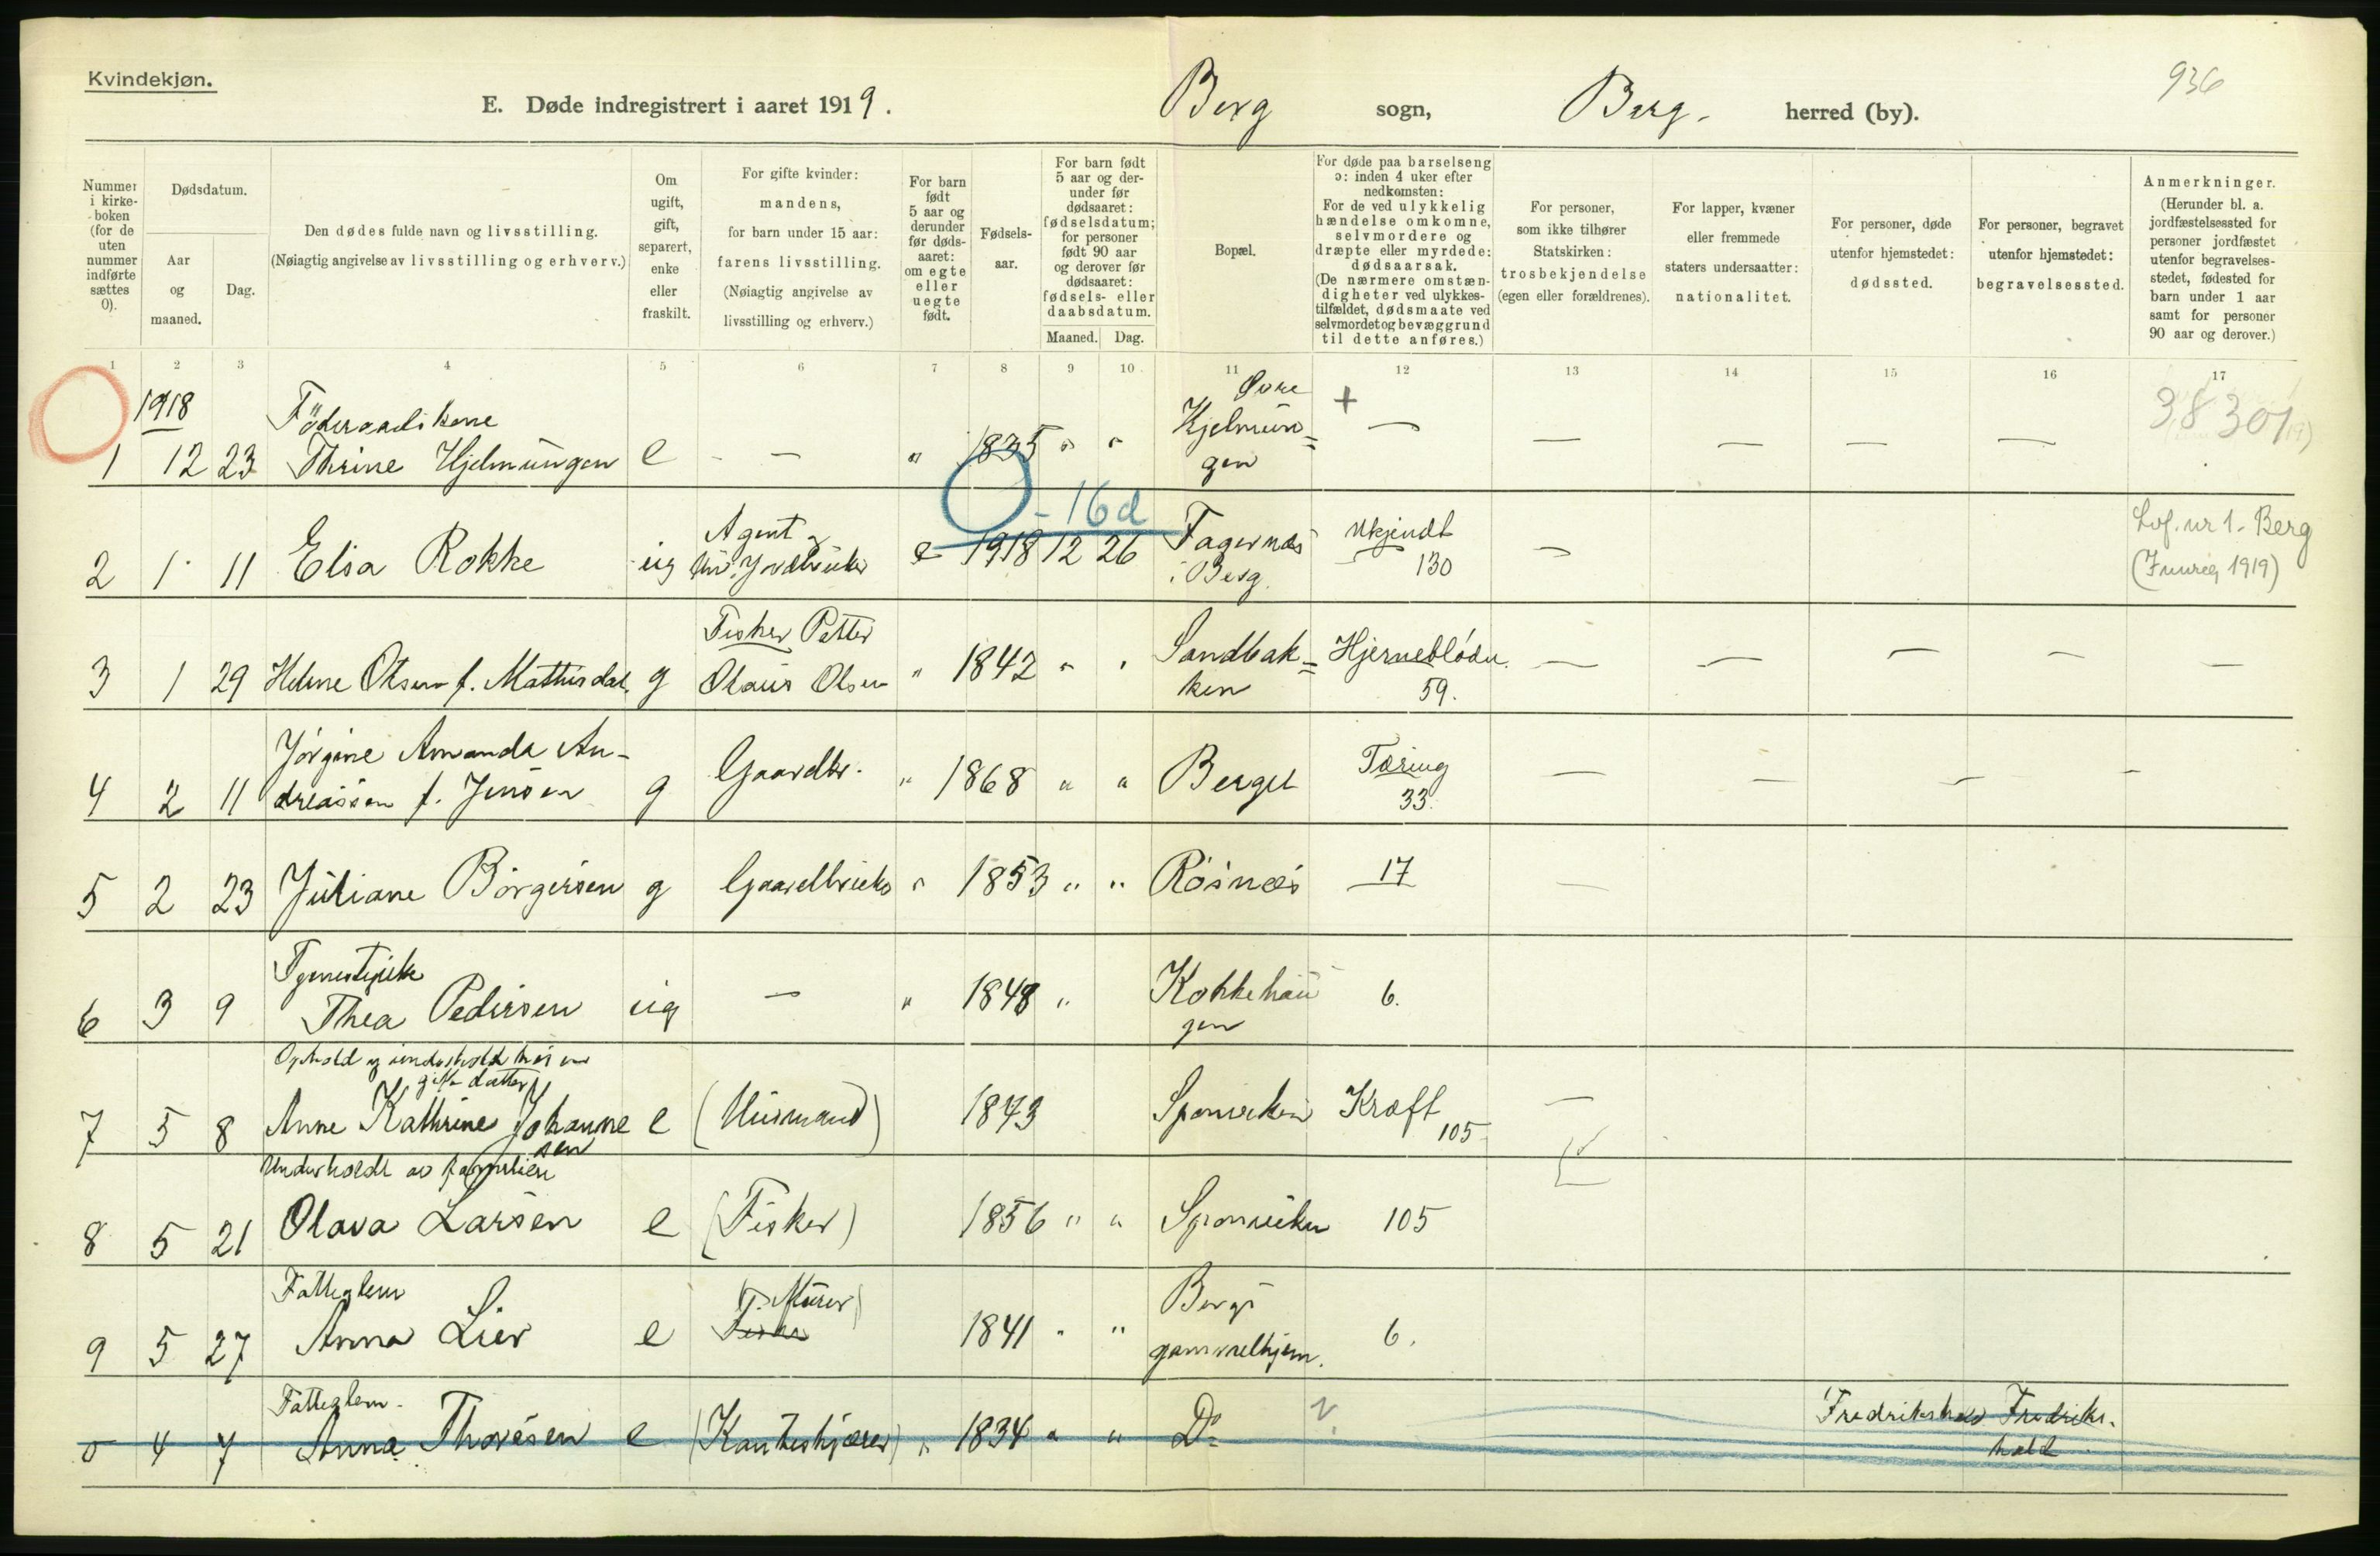 Kvindekjøn.
936
E. Døde indregistrert i aaret 1919. Berg sogn, Berg. herred (by).
Nummer i kirke-boken (for de uten nummer indførte sættes 0).
Dødsdatum.
Aar og maaned.
Dag.
Den dødes fulde navn og livsstilling.
(Nøiagtig angivelse av livsstilling og erhverv.)
Om ugift, gift, separert, enke eller fraskilt.
For gifte kvinder: mandens, for barn under 15 aar: farens livsstilling.
(Nøiagtig angivelse av livsstilling og erhverv.)
For barn født 5 aar og derunder før døds-aaret: om egte eller uegte født.
Fødsels-aar.
For barn født 5 aar og der-under før dødsaaret: fødselsdatum; for personer født 90 aar og derover før dødsaaret: fødsels- eller daabsdatum.
Maaned. Dag.
Bopæl.
For døde paa barselseng ɔ: inden 4 uker efter nedkomsten:
For de ved ulykkelig hændelse omkomne, selvmordere og dræpte eller myrdede: dødsaarsak.
(De nærmere omstæn-digheter ved ulykkes-tilfældet, dødsmaate ved selvmord et og bevæggrund til dette anføres.)
For personer, som ikke tilhører Statskirken: trosbekjendelse (egen eller forældrenes).
For lapper, kvæner eller fremmede staters undersaatter: nationalitet.
For personer, døde utenfor hjemstedet: dødssted.
For personer, begravet utenfor hjemstedet: begravelsessted.
Anmerkninger.
(Herunder bl. a. jordfæstelsessted for personer jordfæstet utenfor begravelses-stedet, fødested for barn under 1 aar samt for personer 90 aar og derover.)
1 2 3 4 5 6 7 8 9 10 11 12 13 14 15 16 17
1918 Föderaadskone Øvre + 38301
1 12 23 Thrine Hjelmungen e - — " 1835 " " Kjelmun= — — — — —
gen
- 16 d
Agent Lof. nr 1. Berg
2 1 11 Elsa Rokke ug e 1918 12 26 Fagernæs Ukjendt —
i Berg 130 1919)
Fisker Petter
3 1 29 Helene Olsen f. Mathisdat. g Olaus Olsen " 1842 " " Sandbak= Hjerneblödn. — — — — —
ken 59.
Jörgine Amanda An-
4 2 11 dreassen f. Jensen g Gaardbr. " 1868 " " Berget Tæring — — — —
33.
5 2 23 Juliane Börgersen g Gaardbruker " 1853 " " Rösnæs 17 —
Tjenestepike
6 3 9 Thea Pedersen ug — " 1848 " Kokkehau 6.
gen
Ophold og underhold hos en
gift datter
7 5 8 Anne Kathrine Johanne e (Husmand) 1843 Sponviken Kræft —
sen 105
Underholdt av familien
8 5 21 Olava Larsen e (Fisker) 1856 " " Sponviken 105
Fatteglem
9 5 27 Anna Lier e (F. Murer) 1841 " " Bergs 6.
Fisker gammelhjem.
Fatteglem.
0 4 7 Anna Thoresen e (Kanteskjærer) " 1834 " " Do Fredrikshald Fredriks-
hald